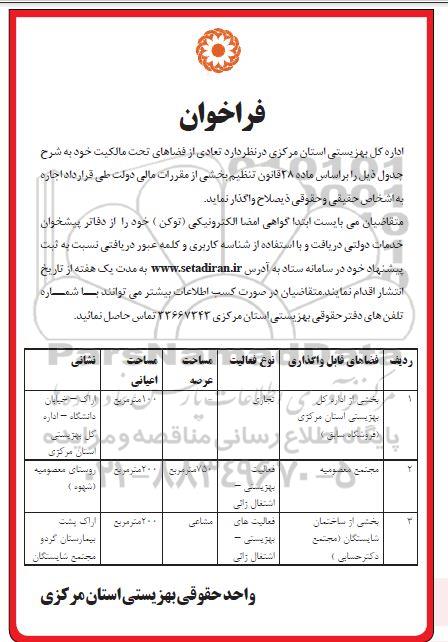 فراخوان
اداره کل بهزیستی استان مرکزی درنظردارد تعادی از فضاهای تحت مالکیت خود به شرح
جدول ذیل را براساس ماده ۲۸قانون تنظیم بخشی از مقررات مالی دولت طی قرارداد اجاره
به اشخاص حقیقی وحقوقی ذیصلاح واگذار نماید.
متقاضیان می بایست ابتدا گواهی امضا الکترونیکی (توکن ) خود را از دفاتر پیشخوان
خدمات دولتی دریافت و با استفاده از شناسه کاربری و کلمه عبور دریافتی نسبت به ثبت
پیشنهاد خود در سامانه ستاد به آدرس www.setadiran.ir به مدت یک هفته از تاریخ
انتشار اقدام نمایند.متقاضیان در صورت کسب اطلاعات بیشتر می توانند با شماره
تلفن های دفترحقوقی بهزیستی استان مرکزی ۳۳۶۶۷۳۴۳ تماس حاصل نمائید.
ردیف فضاهای قابل واگذاری نوع فعالیت مساحت عرصه مساحت اعیانی نشانی
۱ بخشی از اداره کل بهزیستی استان مرکزی (فروشگاه سابق ) تجاری ۱۰۰مترمربع اراک – خیابان دانشگاه – اداره کل بهزیستی استان مرکزی
۲ مجتمع معصومیه فعالیت بهزیستی – اشتغال زائی ۷۵۰مترمربع ۲۰۰مترمربع روستای معصومیه (شهوه )
۳ بخشی از ساختمان شایستگان (مجتمع دکترحسابی ) فعالیت های بهزیستی – اشتغال زائی مشاعی ۲۰۰مترمربع اراک پشت بیمارستان گردو مجتمع شایستگان
واحدحقوقی بهزیستی استان مرکزی
ParsNamadData
پایگاه اطلاع رسانی مناقصه و مزایده
۰۲۱-۸۸۳۴۹۶۷۰-۵